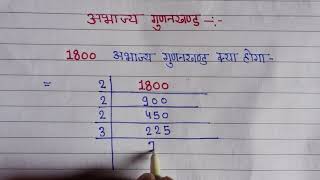 अभाज्य गुणनखण्ड -:-
1800 अभाज्य गुणनखण्ड क्या होगा -
= 2 | 1800
2 | 900
2 | 450
3 | 225
7